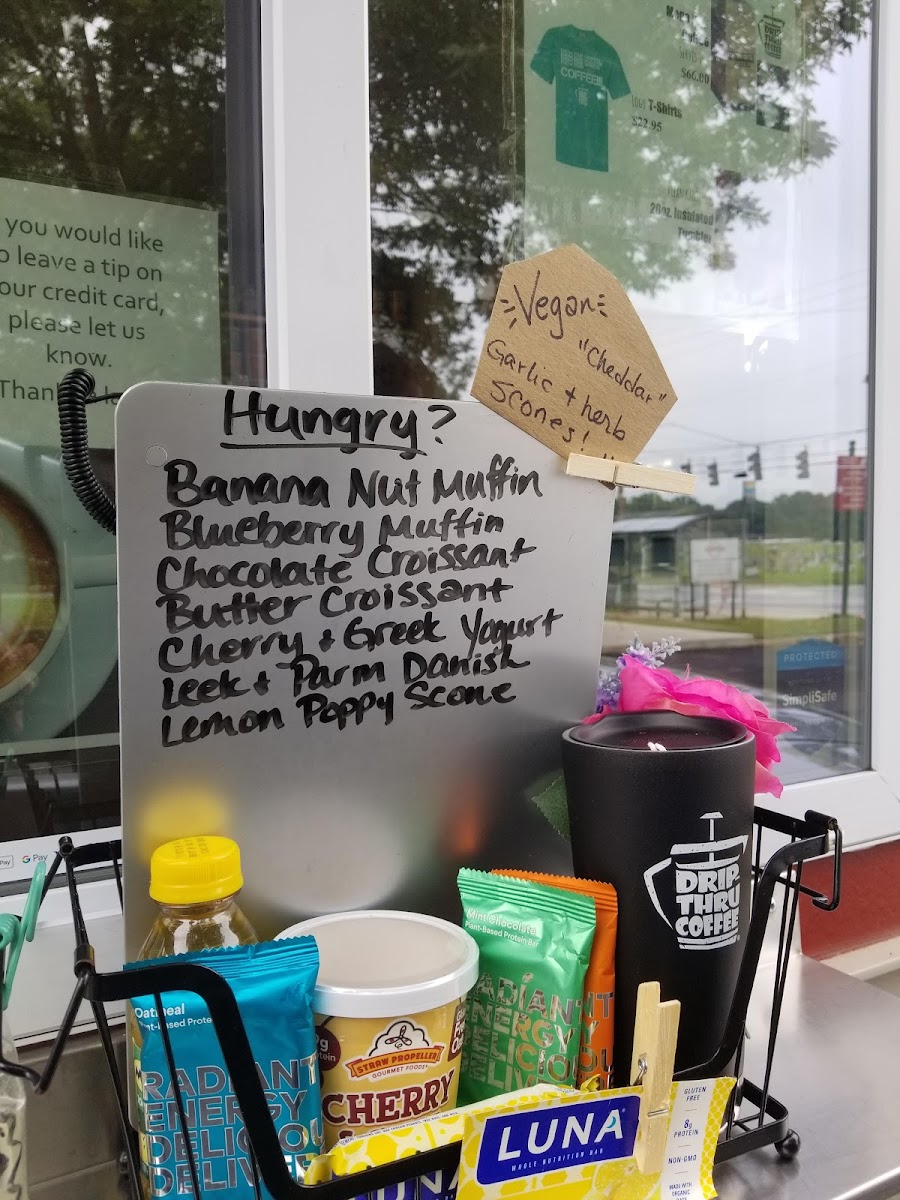 $66.00
T-Shirts
$22.95
20oz. Insulated
Tumbler
COFFEE!!!
DRIP
THRU
COFFEE
you would like
o leave a tip on
our credit card,
please let us
know.
Vegan
"Cheddar"
Garlic + herb
Scones!
Hungry?
Banana Nut Muffin
Blueberry Muffin
Chocolate Croissant
Butter Croissant
Cherry + Greek Yogurt
Leek + Parm Danish
Lemon Poppy Scone
PROTECTED
SimpliSafe
G Pay
DRIP
THRU
COFFEE
Mint Chocolate
Plant-Based Protein Bar
RADIANT
ENERGY
DELICIOU
DELIV
Oatmeal
Plant-Based Prote
RADIANT
ENERGY
DELICIOU
DELIVE
STRAW PROPELLER
GOURMET FOODS
CHERRY
LUNA
WHOLE NUTRITION BAR
GLUTEN
FREE
8g
PROTEIN
NON-GMO
MADE WITH
ORGANIC